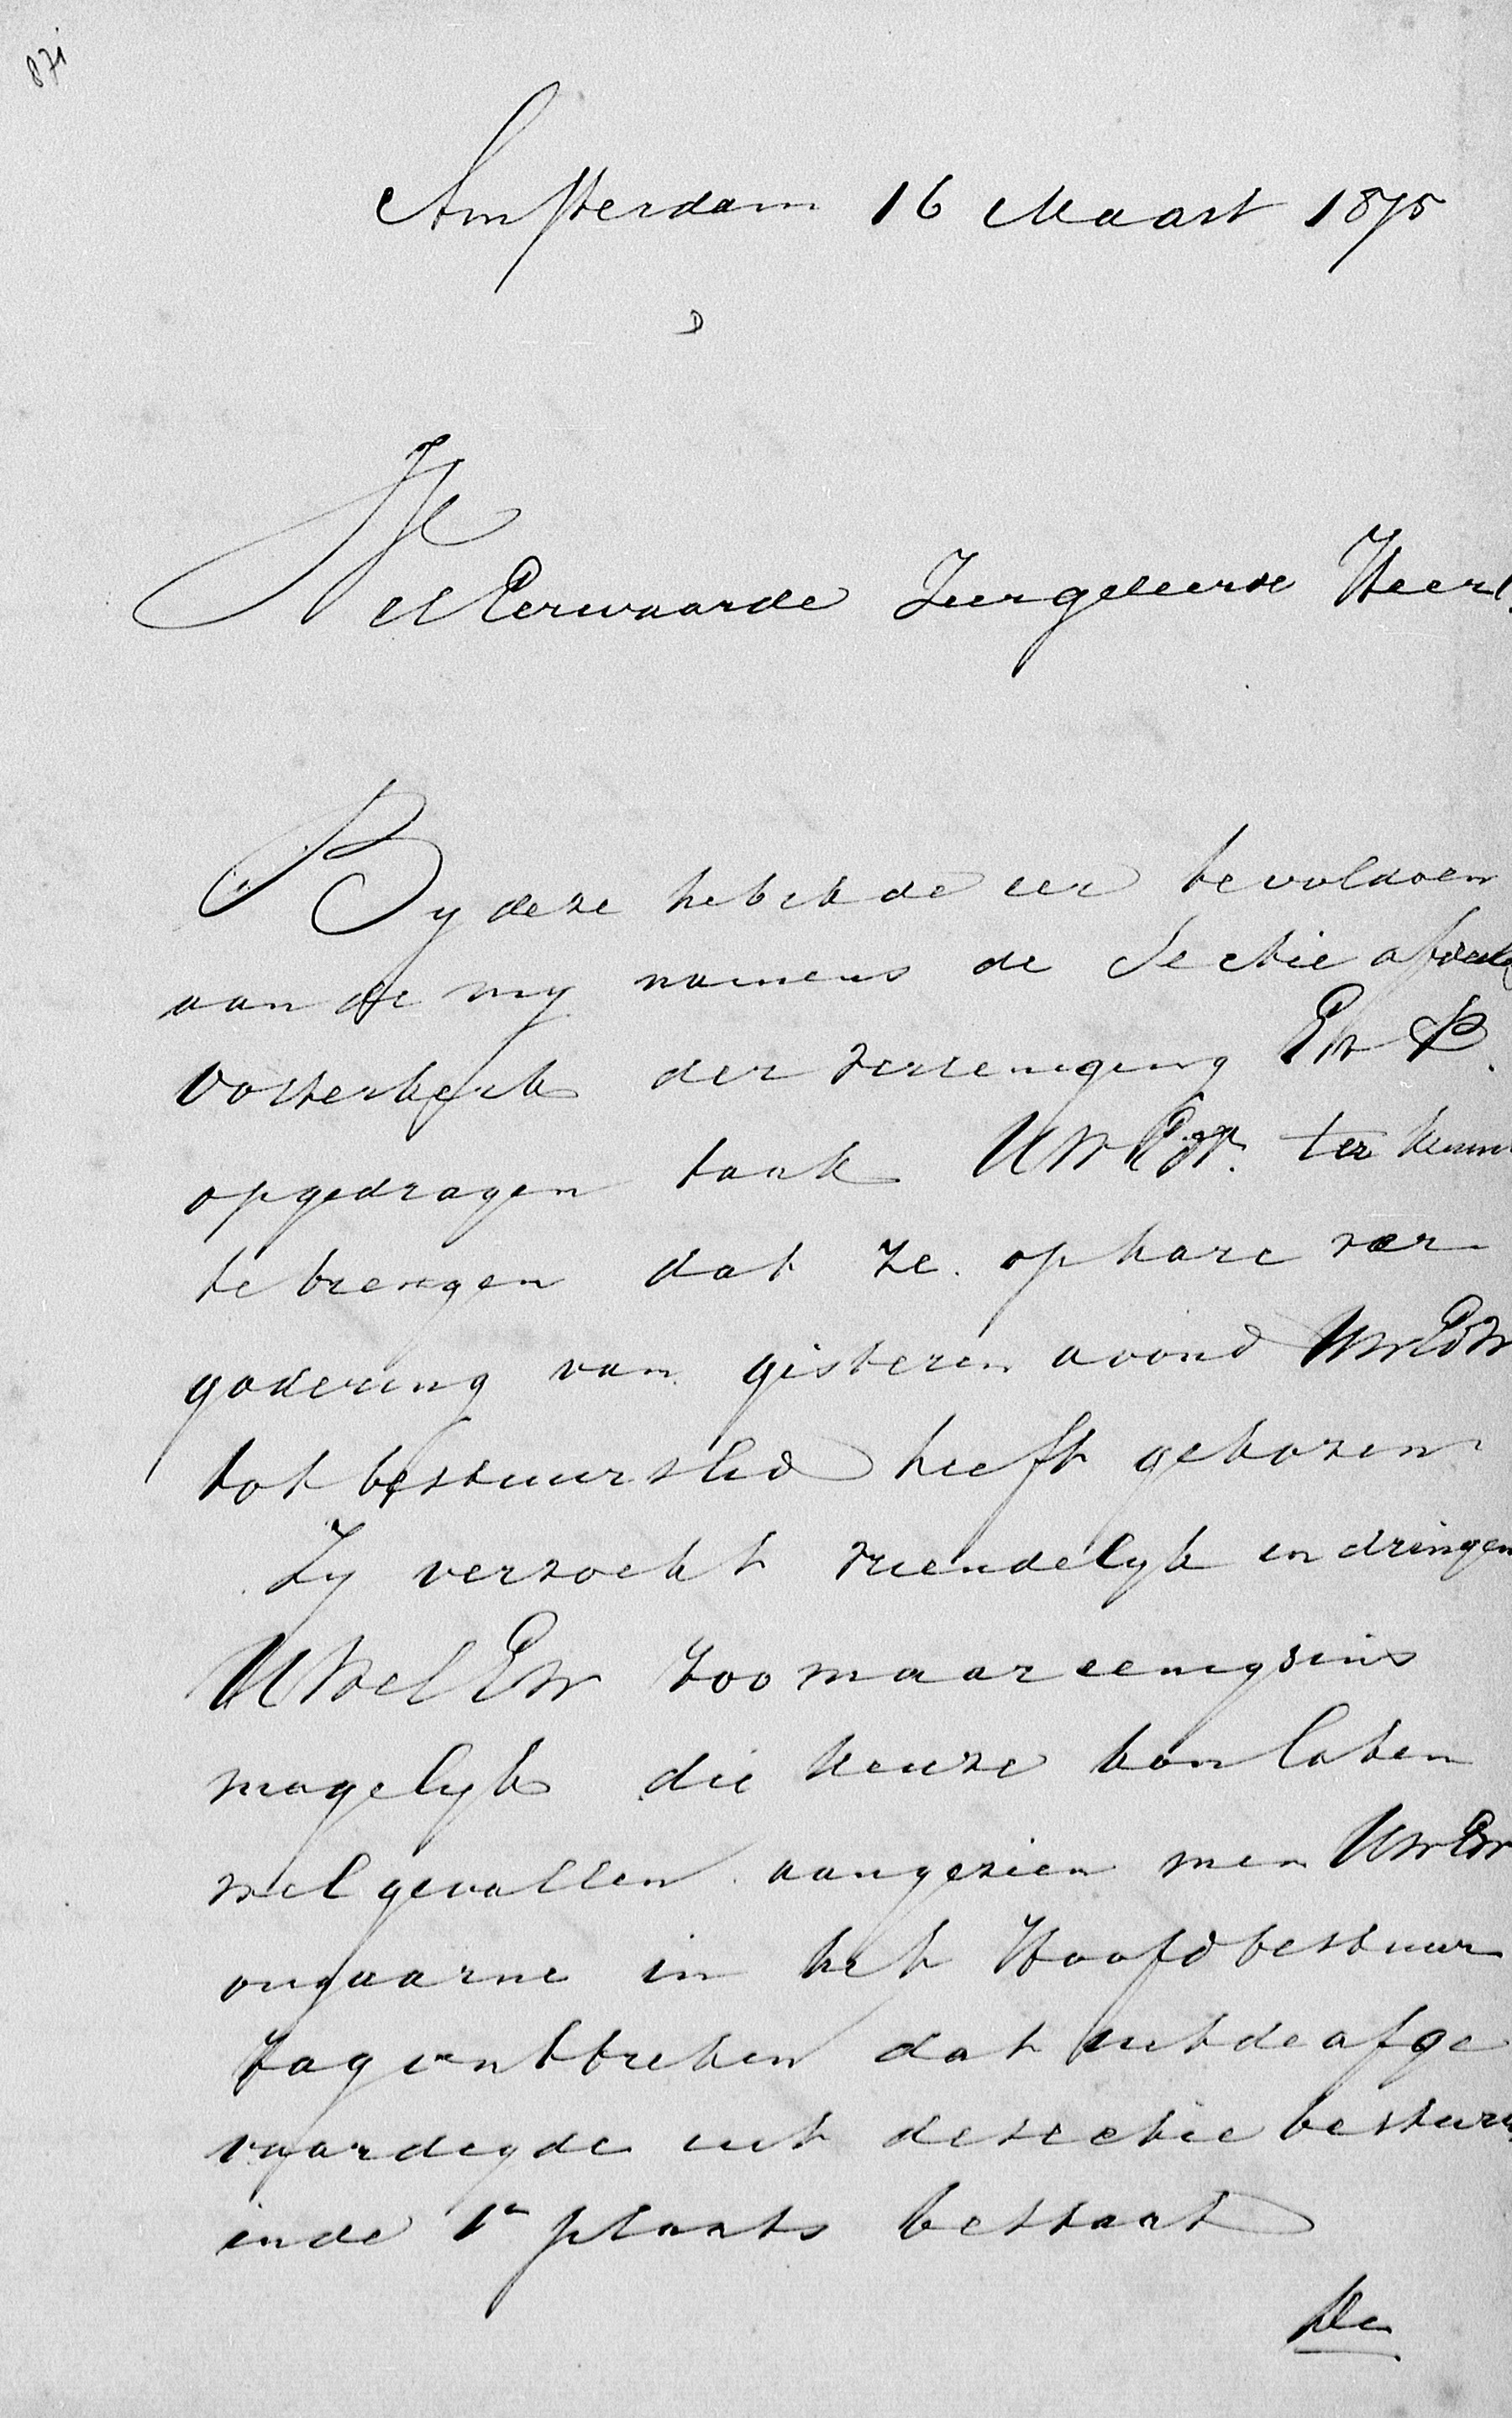 871
Amsterdam 16 Maart 1875
WelEerwaarde Zeergeleerde Heer!
By deze heb ik de eer te voldoen
aan de my namens de Sectie afdeel
Oosterkerk der vereeniging
opgedragen taak UWEW. ter kenn
te brengen dat ze op hare ver
gadering van gisteren avond UWEW
tot bestuurslid heeft gekozen
Zy verzoekt vriendelyk en dringen
UWelEW zoo maar eenigsins
mogelyk die keuze kan laten
welgevallen aangezien men UWEW
ongaarne in het Hoofdbestuur
zag ontbreken dat uit de afge
vaardigde uit de sectie bestuur
in de 1e plaats bestaat
De